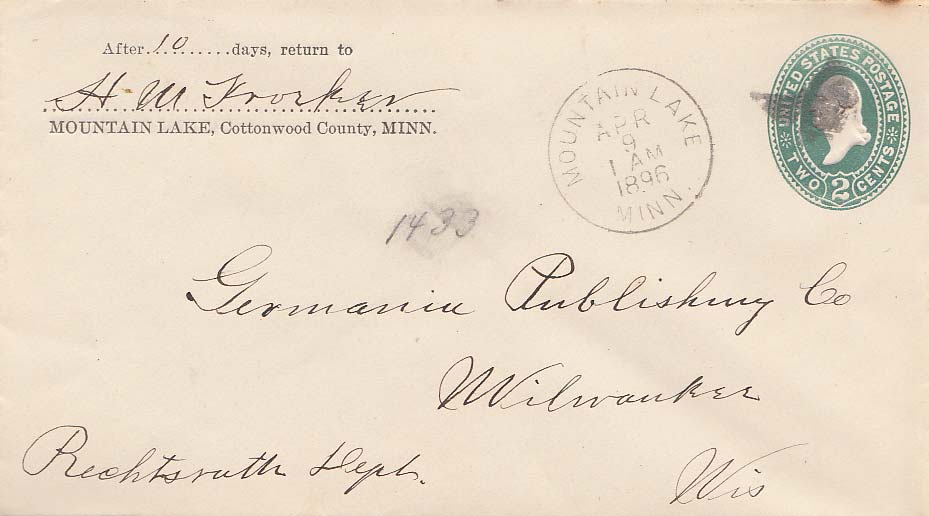 After 10 days, return to
H M Froeker
MOUNTAIN LAKE, Cottonwood County, MINN.
MOUNTAIN LAKE
APR
9
1 AM
1896
MINN.
UNITED STATES POSTAGE
TWO 2 CENTS
1433
Germania Publishing Co
Milwaukee
Rechtsrath Dept.
Wis